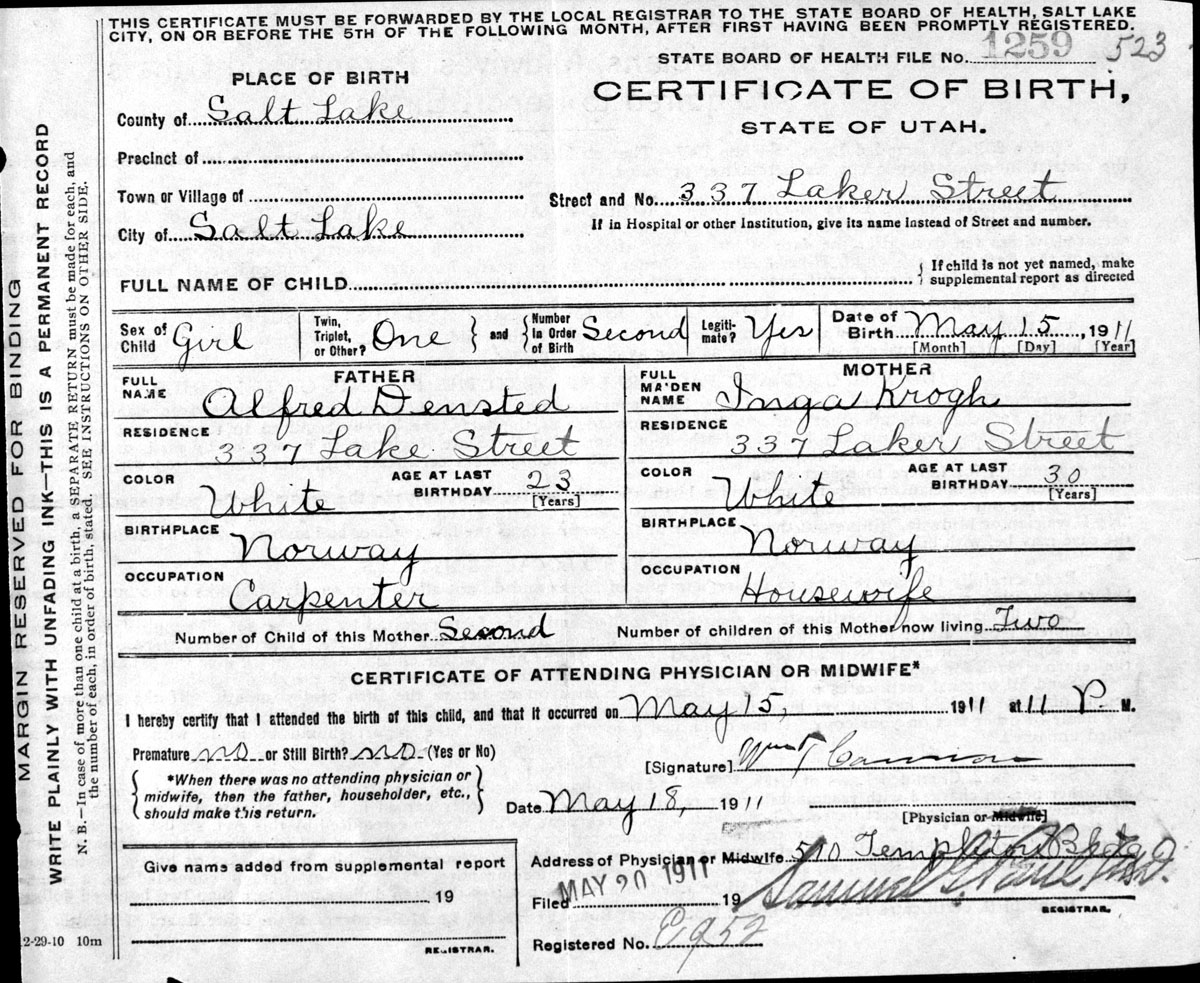 THIS CERTIFICATE MUST BE FORWARDED BY THE LOCAL REGISTRAR TO THE STATE BOARD OF HEALTH, SALT LAKE
CITY, ON OR BEFORE THE 5TH OF THE FOLLOWING MONTH, AFTER FIRST HAVING BEEN PROMPTLY REGISTERED.
STATE BOARD OF HEALTH FILE No. 1259 523
PLACE OF BIRTH
CERTIFICATE OF BIRTH,
STATE OF UTAH.
County of Salt Lake
Precinct of
Town or Village of
Street and No. 337 Laker Street
City of Salt Lake
If in Hospital or other Institution, give its name instead of Street and number.
FULL NAME OF CHILD
If child is not yet named, make
supplemental report as directed
Sex of Child Girl
Twin, Triplet, or Other? One and Number in Order of Birth Second
Legiti-mate? Yes
Date of Birth May 15, 1911
[Month] [Day] [Year]
FATHER
FULL NAME Alfred Densted
RESIDENCE 337 Lake Street
COLOR White
AGE AT LAST BIRTHDAY 23
[Years]
BIRTHPLACE Norway
OCCUPATION Carpenter
MOTHER
FULL MAIDEN NAME Inga Krogh
RESIDENCE 337 Laker Street
COLOR White
AGE AT LAST BIRTHDAY 30
[Years]
BIRTHPLACE Norway
OCCUPATION Housewife
Number of Child of this Mother Second
Number of children of this Mother now living Two
CERTIFICATE OF ATTENDING PHYSICIAN OR MIDWIFE*
I hereby certify that I attended the birth of this child, and that it occurred on May 15, 1911 at 11 P. M.
Premature no or Still Birth? no (Yes or No)
[Signature] Wm T Cannon
*When there was no attending physician or
midwife, then the father, householder, etc.,
should make this return.
Date May 18, 1911
[Physician or Midwife]
Give name added from supplemental report
19
REGISTRAR.
Address of Physician or Midwife 510 Templeton Bldg
Filed MAY 20 1911 19
Samuel G. Paul M.D.
REGISTRAR.
Registered No. 952
2-29-10 10m
MARGIN RESERVED FOR BINDING
WRITE PLAINLY WITH UNFADING INK—THIS IS A PERMANENT RECORD
N. B.—In case of more than one child at a birth, a SEPARATE RETURN must be made for each, and
the number of each, in order of birth, stated. SEE INSTRUCTIONS ON OTHER SIDE.